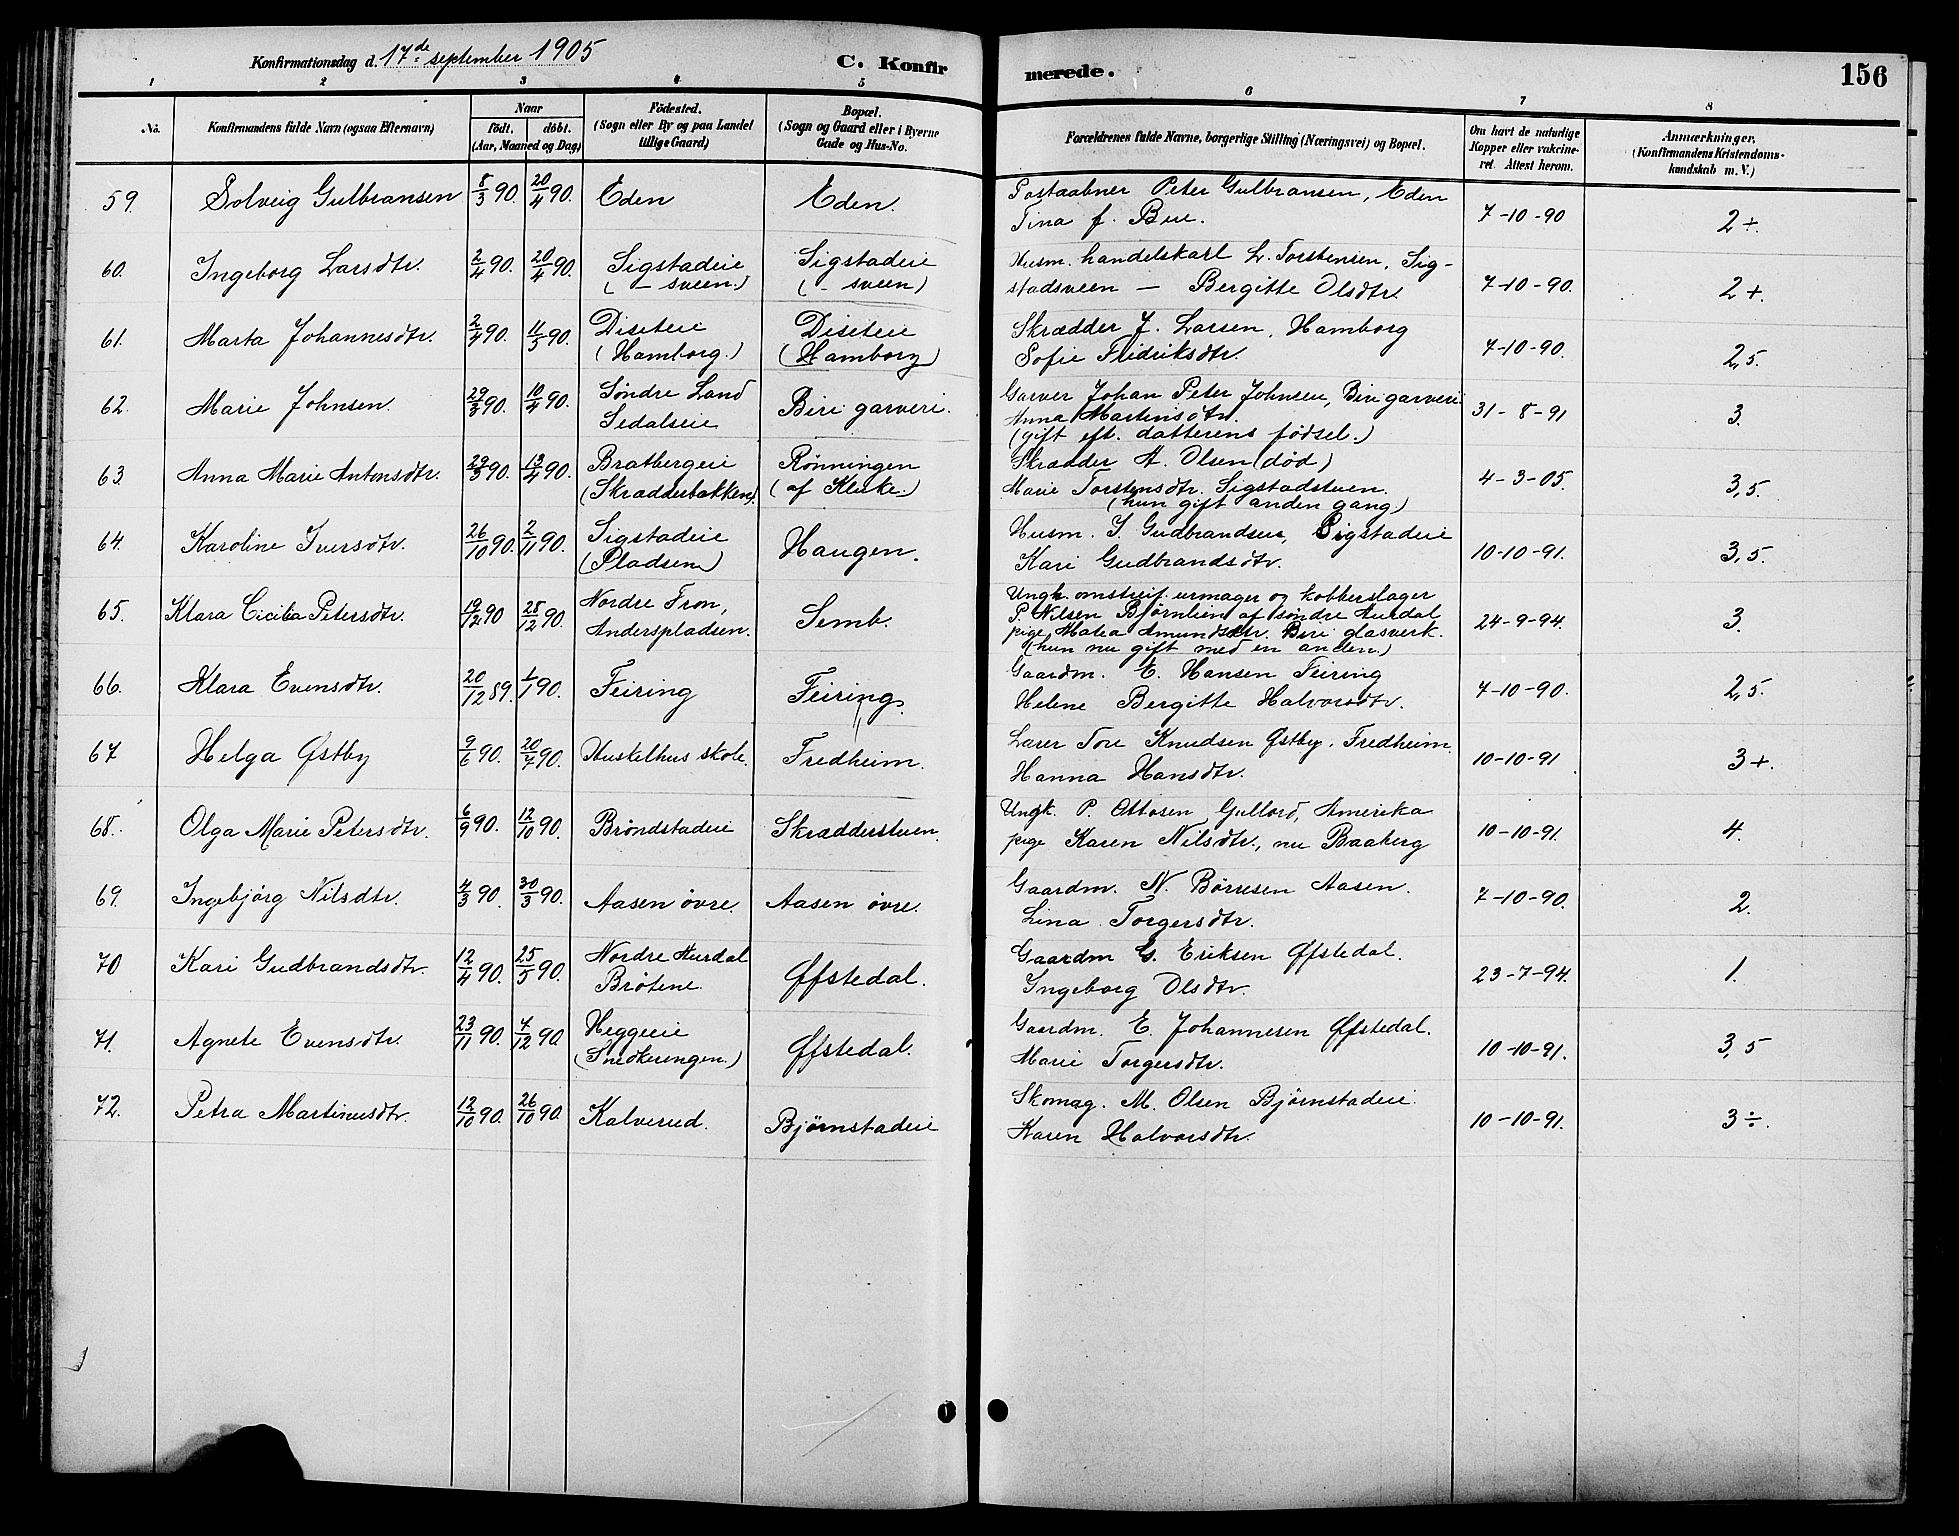 Konfirmationsdag d. 17de september 1905
C. Konfirmerede.
156
1 2 3 4 5 6 7 8
No.
Konfirmandens fulde Navn (ogsaa Efternavn)
Naar
født. døbt.
(Aar, Maaned og Dag)
Fødested.
(Sogn eller By og paa Landet
tillige Gaard)
Bopæl.
(Sogn og Gaard eller i Byerne
Gade og Hus-No.
Forældrenes fulde Navne, borgerlige Stilling (Næringsvei) og Bopæl.
Om havt de naturlige
Kopper eller vakcine-
ret. Attest herom.
Anmærkninger,
(Konfirmandens Kristendoms-
kundskab m. V.)
59. Solveig Gulbransen 8/3 90. 20/4 90. Eden Eden. Postaabner Peter Gulbransen, Eden
Tina f. Bue. 7-10-90 2+.
60. Ingeborg Larsdtr. 2/4 90. 20/4 90. Sigstadeie Sigstadeie Husm. handelskarl L. Torstensen, Sig-
(– sveen.) (– sveen) stadsveen — Bergitte Olsdtr. 7-10-90. 2+.
61. Marta Johannesdtr. 2/4 90. 11/5 90. Diseteie Diseteie Skrædder J. Larsen, Hamborg
(Hamborg.) (Hamborg) Sofie Fredriksdtr. 7-10-90. 2,5.
62. Marie Johnsen. 29/3 90. 10/4 90. Søndre Land Biri garveri. Garver Johan Peter Johnsen, Biri garveri
Sedalseie Anna Martinsdtr. 31-8-91 3.
(gift eft. datterens fødsel.)
63. Anna Marie Antonsdtr. 29/3 90. 13/4 90. Bratbergeie Rønningen Skrædder A. Olsen (død)
(Skrædderbakken) (af Kluke.) Marie Torstensdtr. Sigstadstuen. 4-3-05. 3,5.
(hun gift anden gang)
64. Karoline Iversdtr. 26/10 90. 2/11 90. Sigstadeie Haugen. Husm. I. Gudbrandsen, Sigstadeie
(Pladsen) Kari Gudbrandsdtr. 10-10-91. 3,5.
65. Klara Cicilia Petersdtr. 19/12 90 28/12 90. Nordre Fron, Semb. Ungk. omstreif. urmager og kobberslager
Anderspladsen. P. Nilsen Bjørnlien af søndre Aurdal
pige Matea Amundsdtr. Biri glasverk. 24-9-94. 3.
(hun nu gift med en anden.)
66. Klara Evensdtr. 20/12 89. 1/1 90. Feiring Feiring. Gaardm. E. Hansen Feiring
Helene Bergitte Halvorsdtr. 7-10-90. 2,5.
67 Helga Østby 9/6 90. 20/7 90. Huskelhus skole. Fredheim. Lærer Tore Knudsen Østby. Fredheim.
Hanna Hansdtr. 10-10-91 3+.
68. Olga Marie Petersdtr. 6/9 90. 12/10 90. Brøndstadeie Skrædderstuen. Ungk. P. Ottosen Gullord, Amerika
pige Karen Nilsdtr., nu Baaberg 10-10-91. 4.
69. Ingebjørg Nilsdtr. 4/3 90. 30/3 90. Aasen øvre. Aasen øvre. Gaardm. N. Børresen Aasen.
Lina Torgersdtr. 7-10-90. 2.
70 Kari Gudbrandsdtr. 12/4 90. 25/5 90. Nordre Aurdal Øfstedal. Gaardm G. Eriksen Øfstedal.
Brøtene. Ingeborg Olsdtr. 23-7-94. 1.
71. Agnete Evensdtr. 23/11 90. 7/12 90. Heggeeie Øfstedal. Gaardm. E. Johannesen Øfstedal.
(Snekeringen) Marie Torgersdtr. 10-10-91. 3,5
72. Petra Martinusdtr 12/10 90. 26/10 90. Kalverud. Bjørnstadeie Skomag. M. Olsen Bjørnstadeie.
Karen Halvorsdtr. 10-10-91. 3÷.